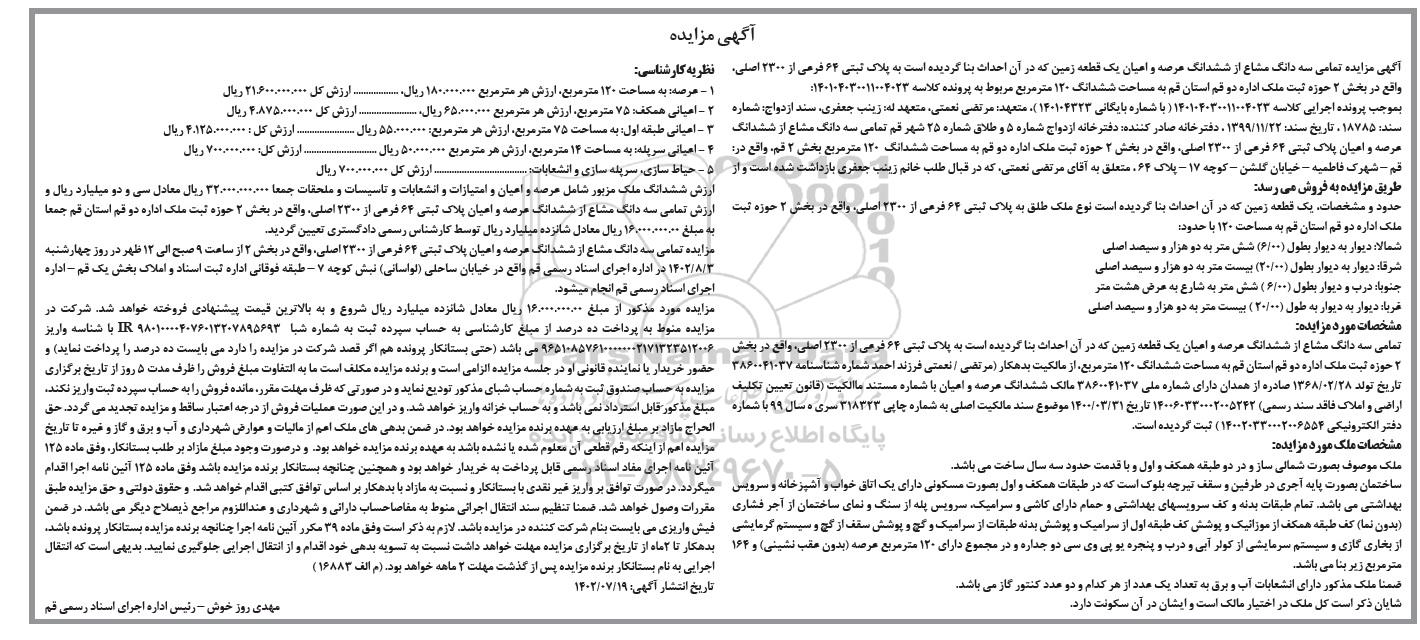 آگهی مزایده
آگهی مزایده تمامی سه دانگ مشاع از ششدانگ عرصه و اعیان یک قطعه زمین که در آن احداث بنا گردیده است به پلاک ثبتی ۶۴ فرعی از ۲۳۰۰ اصلی،
واقع در بخش ۲ حوزه ثبت ملک اداره دو قم استان قم به مساحت ششدانگ ۱۲۰ مترمربع مربوط به پرونده کلاسه ۱۴۰۱۰۴۰۳۰۰۱۱۰۰۴۰۲۳:
بموجب پرونده اجرایی کلاسه ۱۴۰۱۰۴۰۳۰۰۱۱۰۰۴۰۲۳ ( با شماره بایگانی ۱۴۰۱۰۴۳۲۳ )، متعهد: مرتضی نعمتی، متعهد له: زینب جعفری، سند ازدواج: شماره
سند: ۱۸۷۸۵ ، تاریخ سند: ۱۳۹۹/۱۱/۲۲ ، دفترخانه صادر کننده: دفترخانه ازدواج شماره ۵ و طلاق شماره ۲۵ شهر قم تمامی سه دانگ مشاع از ششدانگ
عرصه و اعیان پلاک ثبتی ۶۴ فرعی از ۲۳۰۰ اصلی، واقع در بخش ۲ حوزه ثبت ملک اداره دو قم به مساحت ششدانگ ۱۲۰ مترمربع بخش ۲ قم، واقع در:
قم – شهرک فاطمیه – خیابان گلشن – کوچه ۱۷ – پلاک ۶۴ ، متعلق به آقای مرتضی نعمتی، که در قبال طلب خانم زینب جعفری بازداشت شده است و از
طریق مزایده به فروش می رسد:
حدود و مشخصات، یک قطعه زمین که در آن احداث بنا گردیده است نوع ملک طلق به پلاک ثبتی ۶۴ فرعی از ۲۳۰۰ اصلی، واقع در بخش ۲ حوزه ثبت
ملک اداره دو قم استان قم به مساحت ۱۲۰ با حدود:
شمالا: دیوار به دیوار بطول (۶/۰۰) شش متر به دو هزار و سیصد اصلی
شرقا: دیوار به دیوار بطول (۲۰/۰۰) بیست متر به دو هزار و سیصد اصلی
جنوبا: درب و دیوار بطول (۶/۰۰ ) شش متر به شارع به عرض هشت متر
غربا: دیوار به دیوار به طول (۲۰/۰۰ ) بیست متر به دو هزار و سیصد اصلی
مشخصات مورد مزایده:
تمامی سه دانگ مشاع از ششدانگ عرصه و اعیان یک قطعه زمین که در آن احداث بنا گردیده است به پلاک ثبتی ۶۴ فرعی از ۲۳۰۰ اصلی، واقع در بخش
۲ حوزه ثبت ملک اداره دو قم استان قم به مساحت ششدانگ ۱۲۰ مترمربع، از مالکیت بدهکار (مرتضی / نعمتی فرزند احمد شماره شناسنامه ۳۸۶۰۰۴۱۰۳۷
تاریخ تولد ۱۳۶۸/۰۲/۲۸ صادره از همدان دارای شماره ملی ۳۸۶۰۰۴۱۰۳۷ مالک ششدانگ عرصه و اعیان با شماره مستند مالکیت (قانون تعیین تکلیف
اراضی و املاک فاقد سند رسمی) ۱۴۰۰۶۰۳۳۰۰۰۲۰۰۵۲۴۲ تاریخ ۱۴۰۰/۰۳/۳۱ موضوع سند مالکیت اصلی به شماره چاپی ۳۱۸۳۲۳ سری ه سال ۹۹ با شماره
دفتر الکترونیکی ۱۴۰۰۲۰۳۳۰۰۰۲۰۰۶۵۵۴ ) ثبت گردیده است.
مشخصات ملک مورد مزایده:
ملک موصوف بصورت شمالی ساز و در دو طبقه همکف و اول و با قدمت حدود سه سال ساخت می باشد.
ساختمان بصورت پایه آجری در طرفین و سقف تیرچه بلوک است که در طبقات همکف و اول بصورت مسکونی دارای یک اتاق خواب و آشپزخانه و سرویس
بهداشتی می باشد. تمام طبقات بدنه و کف سرویسهای بهداشتی و حمام دارای کاشی و سرامیک، سرویس پله از سنگ و نمای ساختمان از آجر فشاری
(بدون نما) کف طبقه همکف از موزائیک و پوشش کف طبقه اول از سرامیک و پوشش بدنه طبقات از سرامیک و گچ و پوشش سقف از گچ و سیستم گرمایشی
از بخاری گازی و سیستم سرمایشی از کولر آبی و درب و پنجره یو پی وی سی دو جداره و در مجموع دارای ۱۲۰ مترمربع عرصه (بدون عقب نشینی) و ۱۶۴
مترمربع زیر بنا می باشد.
ضمنا ملک مذکور دارای انشعابات آب و برق به تعداد یک عدد از هر کدام و دو عدد کنتور گاز می باشد.
شایان ذکر است کل ملک در اختیار مالک است و ایشان در آن سکونت دارد.
نظریه کارشناسی:
۱ – عرصه: به مساحت ۱۲۰ مترمربع، ارزش هر مترمربع ۱۸۰.۰۰۰.۰۰۰ ریال، .................. ارزش کل ۲۱.۶۰۰.۰۰۰.۰۰۰ ریال
۲ – اعیانی همکف: ۷۵ مترمربع، ارزش هر مترمربع ۶۵.۰۰۰.۰۰۰ ریال، ....................... ارزش کل ۴.۸۷۵.۰۰۰.۰۰۰ ریال
۳ – اعیانی طبقه اول: به مساحت ۷۵ مترمربع، ارزش هر مترمربع: ۵۵.۰۰۰.۰۰۰ ریال ....................... ارزش کل : ۴.۱۲۵.۰۰۰.۰۰۰ ریال
۴ – اعیانی سرپله: به مساحت ۱۴ مترمربع، ارزش هر مترمربع ۵۰.۰۰۰.۰۰۰ ریال ............................. ارزش کل: ۷۰۰.۰۰۰.۰۰۰ ریال
۵ – حیاط سازی، سرپله سازی و انشعابات: ..................................... ارزش کل ۷۰۰.۰۰۰.۰۰۰ ریال
ارزش ششدانگ ملک مزبور شامل عرصه و اعیان و امتیازات و انشعابات و تاسیسات و ملحقات جمعا ۳۲.۰۰۰.۰۰۰.۰۰۰ ریال معادل سی و دو میلیارد ریال و
ارزش تمامی سه دانگ مشاع از ششدانگ عرصه و اعیان پلاک ثبتی ۶۴ فرعی از ۲۳۰۰ اصلی، واقع در بخش ۲ حوزه ثبت ملک اداره دو قم استان قم جمعا
به مبلغ ۱۶.۰۰۰.۰۰۰.۰۰ ریال معادل شانزده میلیارد ریال توسط کارشناس رسمی دادگستری تعیین گردید.
مزایده تمامی سه دانگ مشاع از ششدانگ عرصه و اعیان پلاک ثبتی ۶۴ فرعی از ۲۳۰۰ اصلی، واقع در بخش ۲ از ساعت ۹ صبح الی ۱۲ ظهر در روز چهارشنبه
۱۴۰۲/۸/۳ در اداره اجرای اسناد رسمی قم واقع در خیابان ساحلی (لواسانی) نبش کوچه ۷ – طبقه فوقانی اداره ثبت اسناد و املاک بخش یک قم – اداره
اجرای اسناد رسمی قم انجام میشود.
مزایده مورد مذکور از مبلغ ۱۶.۰۰۰.۰۰۰.۰۰ ریال معادل شانزده میلیارد ریال شروع و به بالاترین قیمت پیشنهادی فروخته خواهد شد. شرکت در
مزایده منوط به پرداخت ده درصد از مبلغ کارشناسی به حساب سپرده ثبت به شماره شبا IR ۹۸۰۱۰۰۰۰۴۰۷۶۰۱۳۲۰۷۸۹۵۶۹۳ با شناسه واریز
۹۶۵۱۰۸۵۷۶۱۰۰۰۰۰۰۰۲۱۷۱۳۲۳۵۱۲۰۰۶ می باشد (حتی بستانکار پرونده هم اگر قصد شرکت در مزایده را دارد می بایست ده درصد را پرداخت نماید) و
حضور خریدار یا نماینده قانونی او در جلسه مزایده الزامی است و برنده مزایده مکلف است ما به التفاوت مبلغ فروش را ظرف مدت ۵ روز از تاریخ برگزاری
مزایده به حساب صندوق ثبت به شماره حساب شبای مذکور تودیع نماید و در صورتی که ظرف مهلت مقرر، مانده فروش را به حساب سپرده ثبت واریز نکند،
مبلغ مذکور قابل استرداد نمی باشد و به حساب خزانه واریز خواهد شد. و در این صورت عملیات فروش از درجه اعتبار ساقط و مزایده تجدید می گردد. حق
الحراج مازاد بر مبلغ ارزیابی به عهده برنده مزایده خواهد بود. در ضمن بدهی های ملک اعم از مالیات و عوارض شهرداری و آب و برق و گاز و غیره تا تاریخ
مزایده اعم از اینکه رقم قطعی آن معلوم شده یا نشده باشد به عهده برنده مزایده خواهد بود. و درصورت وجود مبلغ مازاد بر طلب بستانکار، وفق ماده ۱۲۵
آئین نامه اجرای مفاد اسناد رسمی قابل پرداخت به خریدار خواهد بود و همچنین چنانچه بستانکار برنده مزایده باشد وفق ماده ۱۲۵ آئین نامه اجرا اقدام
میگردد. در صورت توافق بر واریز غیر نقدی با بستانکار و نسبت به مازاد با بدهکار بر اساس توافق کتبی اقدام خواهد شد. و حقوق دولتی و حق مزایده طبق
مقررات وصول خواهد شد. ضمنا تنظیم سند انتقال اجرائی منوط به مفاصاحساب دارائی و شهرداری و عنداللزوم مراجع ذیصلاح دیگر می باشد. در ضمن
فیش واریزی می بایست بنام شرکت کننده در مزایده باشد. لازم به ذکر است وفق ماده ۳۹ مکرر آئین نامه اجرا چنانچه برنده مزایده بستانکار پرونده باشد،
بدهکار تا ۲ماه از تاریخ برگزاری مزایده مهلت خواهد داشت نسبت به تسویه بدهی خود اقدام و از انتقال اجرایی جلوگیری نمایید. بدیهی است که انتقال
اجرایی به نام بستانکار برنده مزایده پس از گذشت مهلت ۲ ماهه خواهد بود. (م الف ۱۶۸۸۳ )
تاریخ انتشار آگهی: ۱۴۰۲/۰۷/۱۹
مهدی روز خوش – رئیس اداره اجرای اسناد رسمی قم
پایگاه اطلاع رسانی مناقصه و مزایده
۰۲۱–۸۸۳۴۹۶۷۰–۵